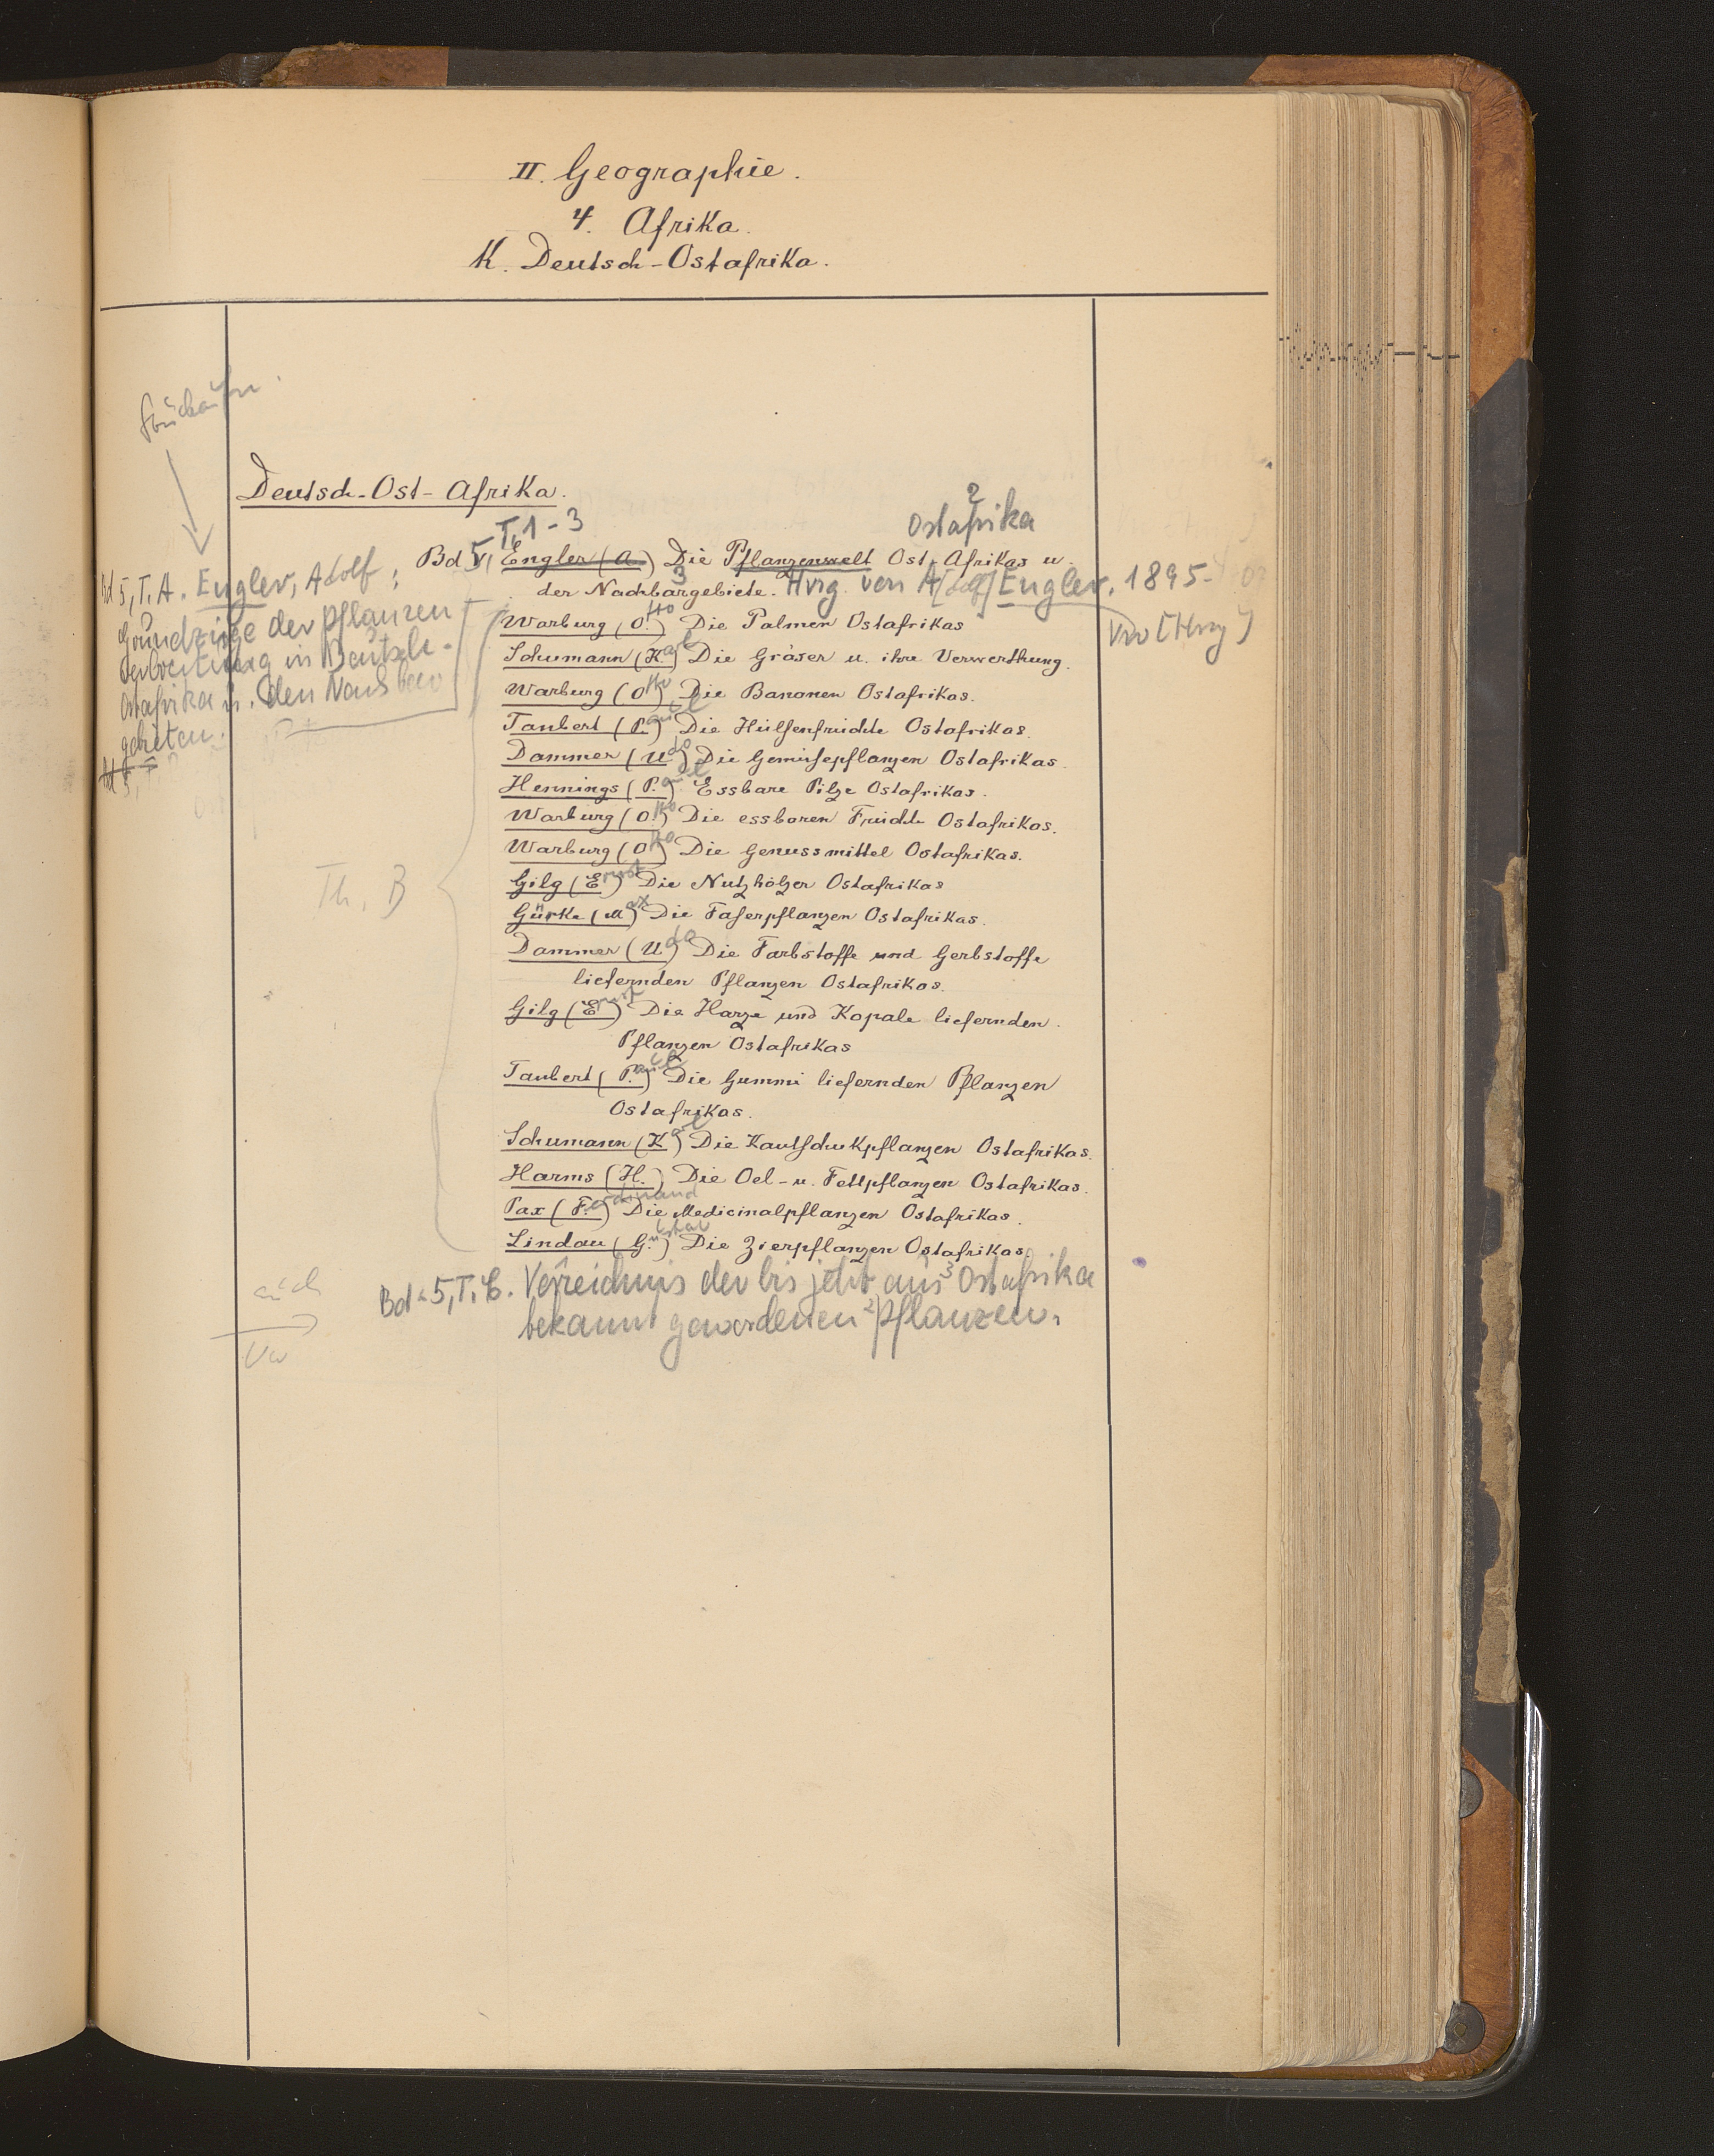 II. Geographie.
4. Afrika.
K. Deutsch-Ostafrika.
Deutsch-Ost-Afrika.
T. 1-3
2
Ostafrika
Bd 5, Engler (A.) Die Pflanzenwelt Ost-Afrikas u.
3
der Nachbargebiete. Hrg. von A[dolf] Engler. 1895.
Vw [Hrg]
Bd 5, T. A. Engler, Adolf:
Grundzüge der Pflanzen
verbreitung in Deutsch-
Ostafrika u. den Nachbar
gebieten.
Warburg (Otto) Die Palmen Ostafrikas
Schumann (Karl) Die Gräser u. ihre Verwerthung.
Warburg (Otto) Die Bananen Ostafrikas.
Taubert (Paul) Die Hülsenfrüchte Ostafrikas.
Dammer (Udo) Die Gemüsepflanzen Ostafrikas.
Hennings (Paul) Essbare Pilze Ostafrikas.
Warburg (Otto) Die essbaren Früchte Ostafrikas.
Warburg (Otto) Die Genussmittel Ostafrikas.
Th. B
Gilg (Ernst) Die Nutzhölzer Ostafrikas
Gürke (Max) Die Faserpflanzen Ostafrikas.
Dammer (Udo) Die Farbstoffe und Gerbstoffe
liefernden Pflanzen Ostafrikas.
Gilg (Ernst) Die Harze und Kopale liefernden
Pflanzen Ostafrikas
Taubert (Paul) Die Gummi liefernden Pflanzen
Ostafrikas.
Schumann (Karl) Die Kautschukpflanzen Ostafrikas.
Harms (H.) Die Oel- u. Fettpflanzen Ostafrikas.
Pax (Ferdinand) Die Medicinalpflanzen Ostafrikas.
Lindau (Gustav) Die Zierpflanzen Ostafrikas
auch
Vw
Bd 5, T. C. Verzeichnis der bis jetzt aus 3 Ostafrika
bekannt gewordenen 2 Pflanzen.